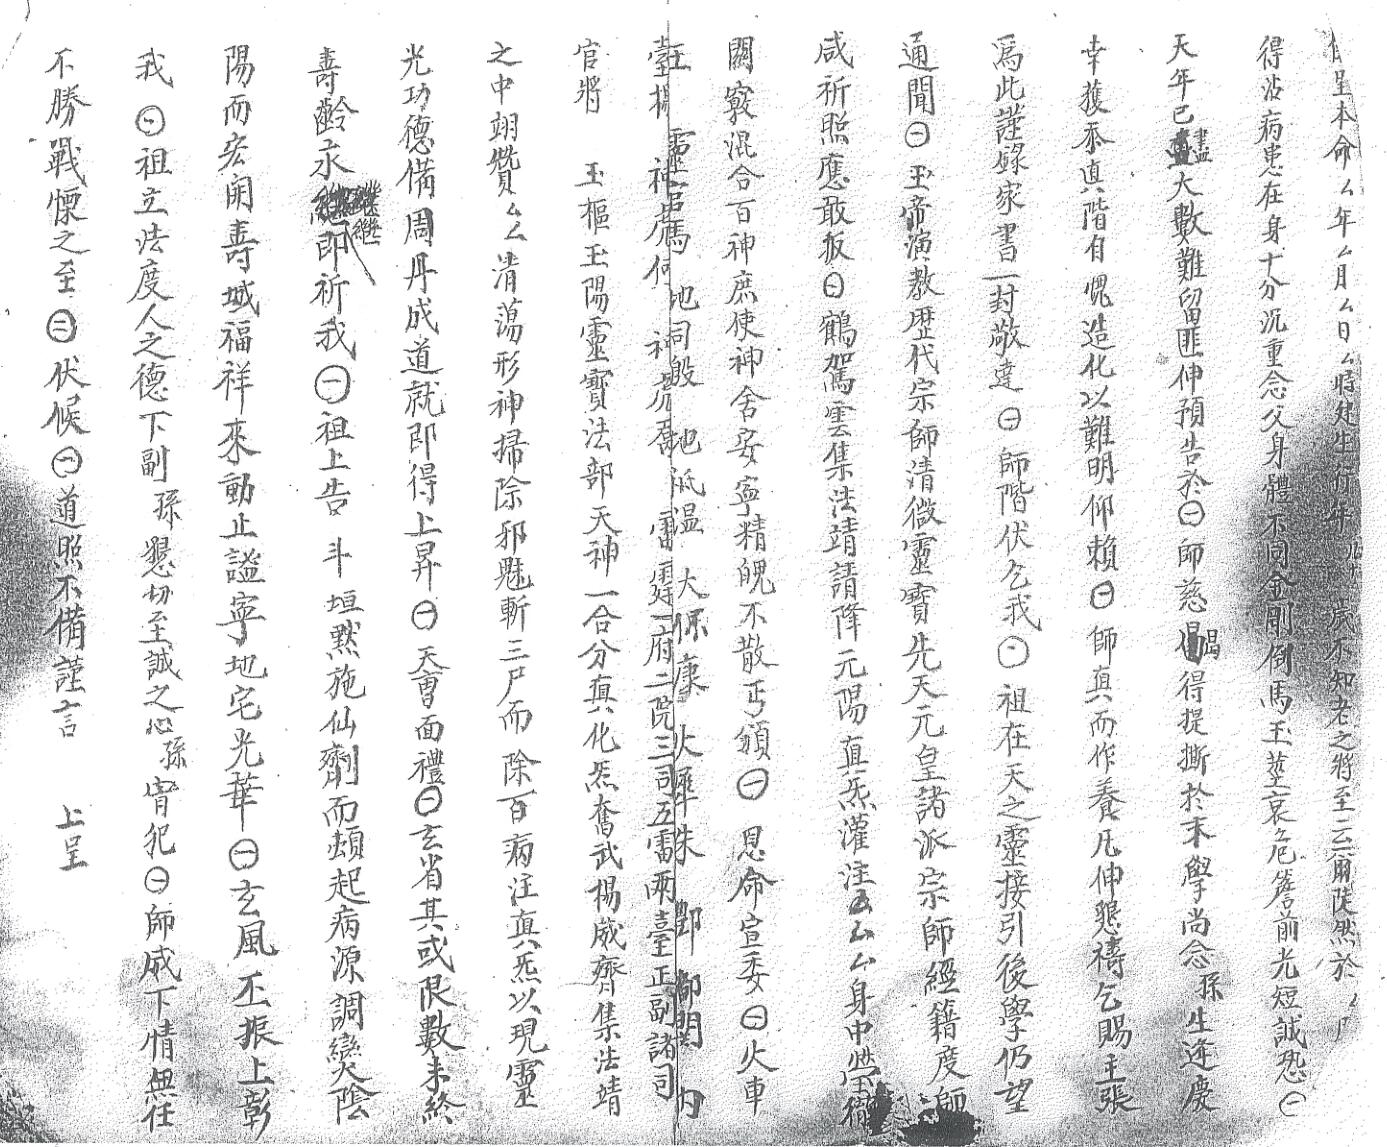 呈本命厶年厶月厶日厶時建生行年 歲不知老之將至云爾陡然於厶月
得沾病患在身十分沉重念父身體不同金剛倒馬玉莖哀危簷前光短誠恐㊀
天年已盡大數難留匪伸預告於㊀師慈 得提撕於末學尚念孫生逢慶
幸獲忝真階自愧造化以難明仰賴㊀師真而作養凡伸懇禱乞賜主張
爲此謹錄家書一封敬達㊀師階伏乞我㊀祖在天之靈接引後學仍望
通聞㊀玉帝演教歷代宗師清微靈寶先天元皇諸派宗師經籍度師
咸祈照應敢扳㊀鶴駕雲集法靖請降元陽真炁灌注厶厶身中 徹
關竅混合百神庶使神舍安寧精魄不散丐頒㊀恩命宣委㊀火車
王 靈官馬 地司殷 地祇溫 大保康 火犀朱 鄧 關 內
臺 神 何 神 雷霆一府二院三司五雷兩臺正副諸司
官將 玉樞玉陽靈寶法部天神一合分真化炁奮武揚威齊集法靖
之中翊贊厶厶清蕩形神掃除邪魅斬三尸而除百病注真炁以現靈
光功德備周丹成道就即得上昇㊀天曹面禮㊀玄省其或限數未終
壽齡永繼即祈我㊀祖上告 斗垣默施仙劑而頓起病源調燮陰
陽而宏開壽域福祥來動止謐寧地宅光華㊀玄風丕振上彰
我㊀祖立法度人之德下副孫懇切至誠之心孫冒犯㊀師威下情無任
不勝戰慄之至㊂伏候㊀道照不備謹言 上呈